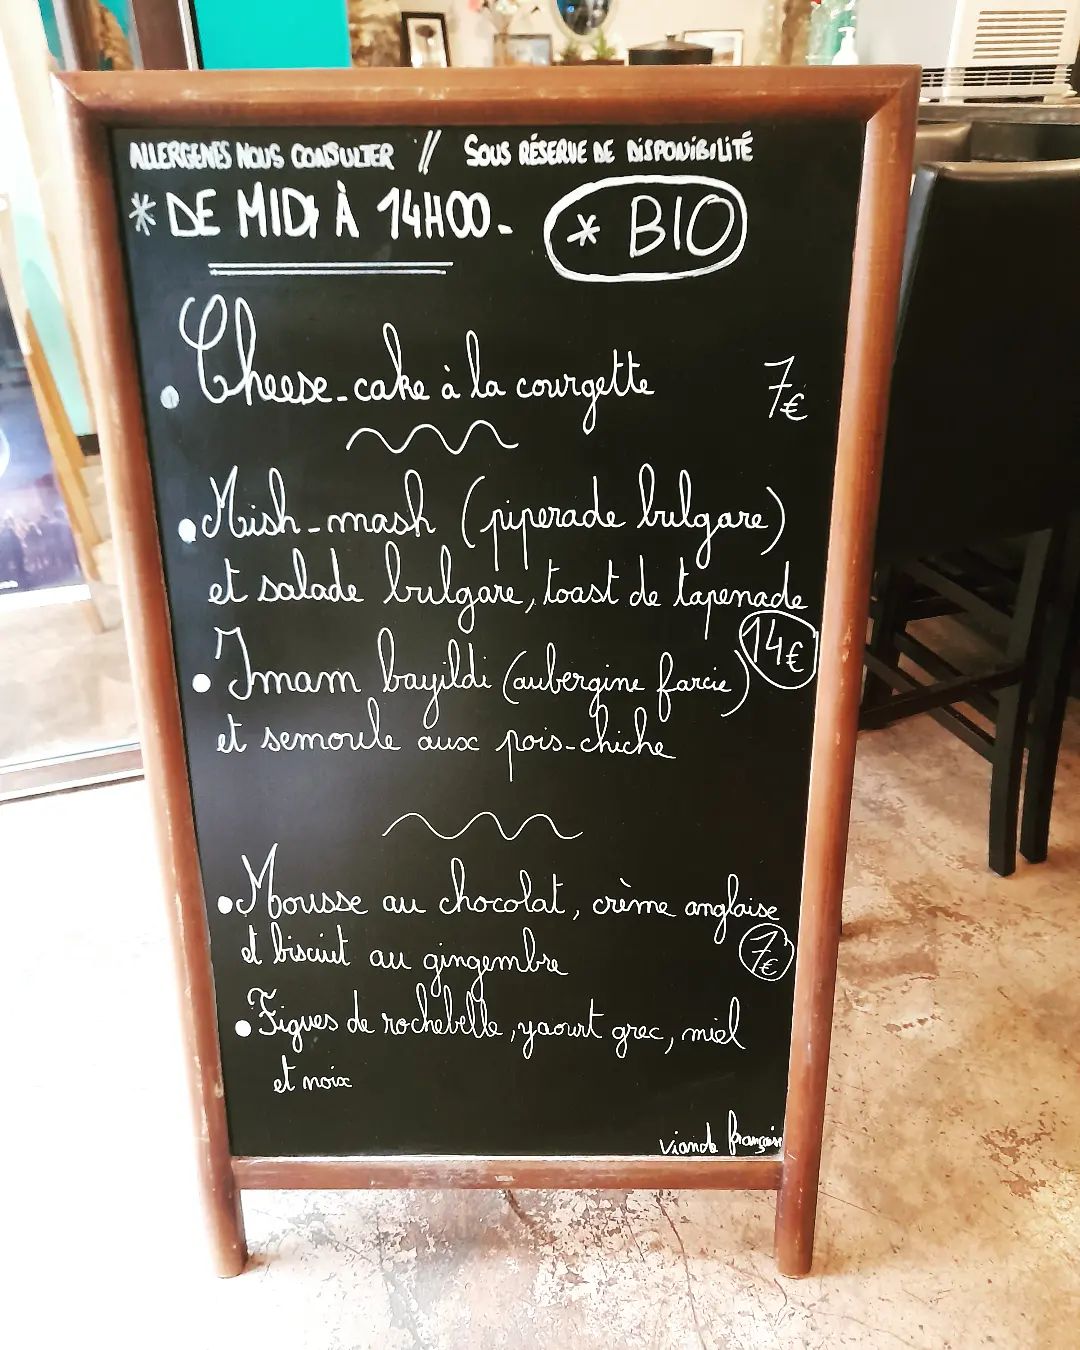 ALLERGENES NOUS CONSULTER // SOUS RÉSERVE DE DISPONIBILITÉ
* DE MIDI À 14H00 - * BIO
Cheese-cake à la courgette 7€
Mish-mash (piperade bulgare)
et salade bulgare, toast de tapenade
14€
Imam bayildi (aubergine farcie)
et semoule aux pois-chiche
Mousse au chocolat, crème anglaise
et biscuit au gingembre 7€
Figues de rochebelle, yaourt grec, miel
et noix
Viande française